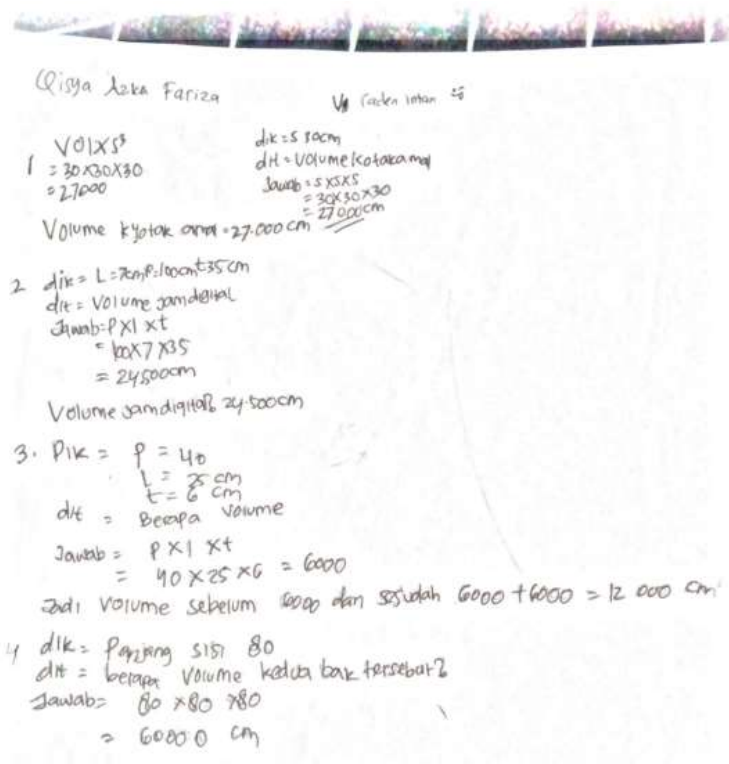 Qisya Azka Fariza
VOlXS³
1 = 30X30X30
= 27000
dik = S 30cm
dit = Volume kotak amal
Jawab = SXSXS
= 30X30X30
= 27000cm
Volume kotak amal = 27.000 cm
2 dik = L = 7cm P = 100cm t 35 cm
dit = Volume jam digital
Jawab = P X l X t
= 100X7X35
= 24500cm
Volume jam digital 24.500cm
3. Dik = P = 40
L = 25 cm
t = 6 cm
dit = Berapa volume
Jawab = P X l X t
= 40 X 25 X 6 = 6000
Jadi volume sebelum 6000 dan sesudah 6000 + 6000 = 12 000 cm
4 dik = Panjang sisi 80
dit = berapa volume kedua bak tersebar?
Jawab = 80 X 80 X 80
= 60000 cm